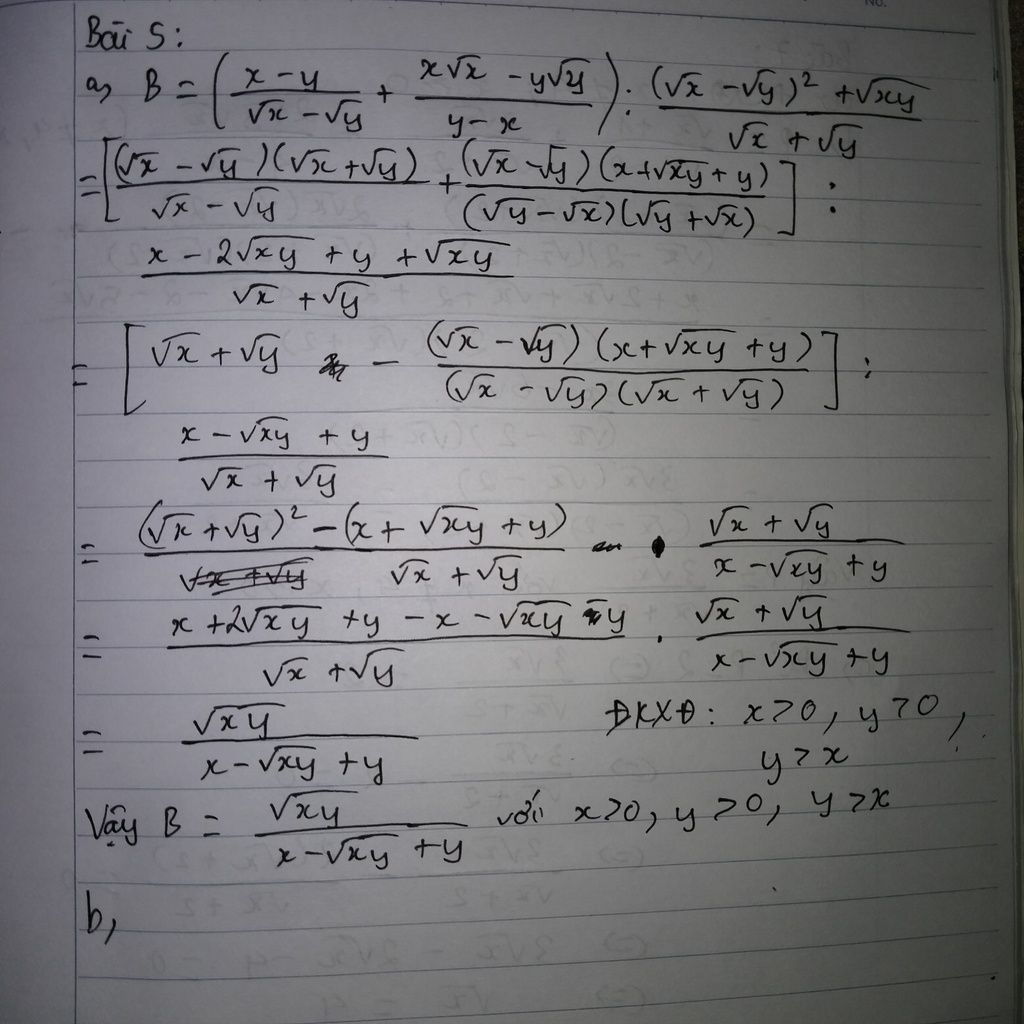 Bài 5:
a, B = (x-y / √x - √y + x√x - y√y / y-x) : (√x - √y)² + √xy / √x + √y
= [(√x - √y)(√x + √y) / √x - √y + (√x - √y)(x + √xy + y) / (√y - √x)(√y + √x)] :
x - 2√xy + y + √xy / √x + √y
= [√x + √y - (√x - √y)(x + √xy + y) / (√x - √y)(√x + √y)] :
x - √xy + y / √x + √y
= (√x + √y)² - (x + √xy + y) / √x + √y . √x + √y / x - √xy + y
= x + 2√xy + y - x - √xy - y / √x + √y . √x + √y / x - √xy + y
= √xy / x - √xy + y ĐKXĐ: x > 0, y > 0,
y > x
Vậy B = √xy / x - √xy + y với x > 0, y > 0, y > x
b,